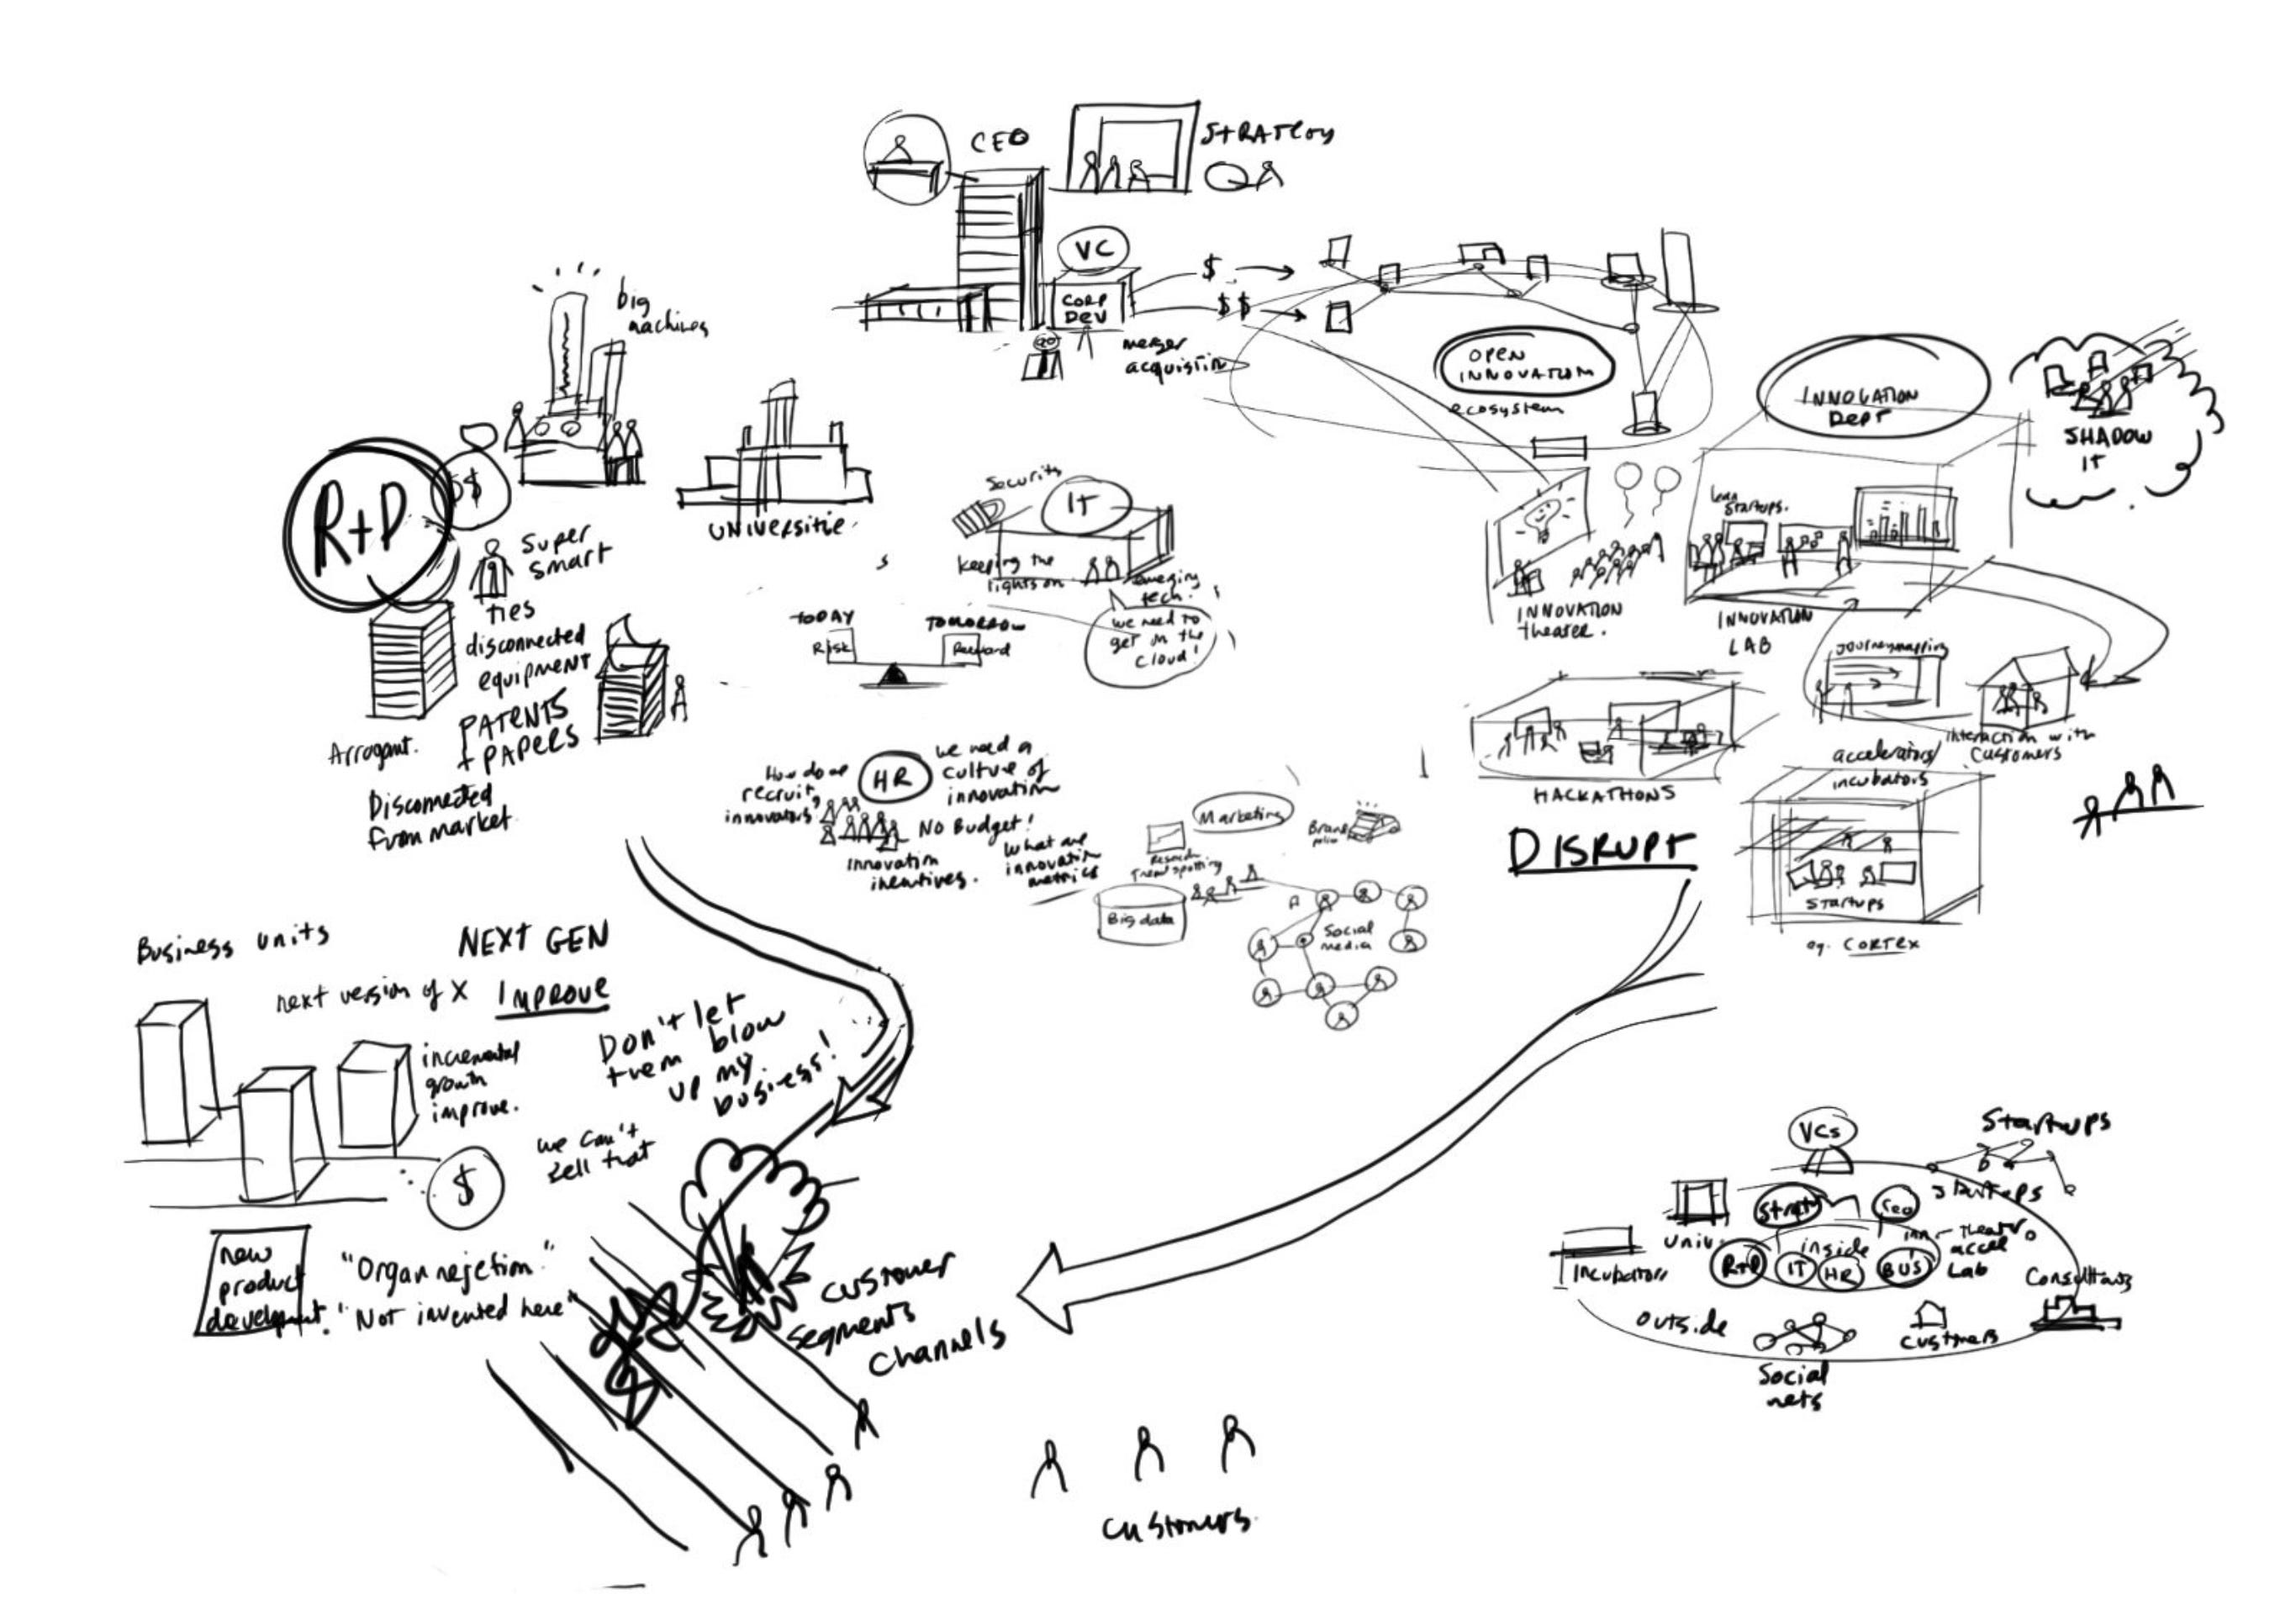 CEO
STRATEGY
QA
VC
$
CORP
DEV
$$
merger
big
machines
OPEN
INNOVATION
ecosystem
INNOVATION
DEPT
SHADOW
IT
R+D
$$
Super
smart
UNIVERSITIE
s
Security
IT
keeping the
lights on
emerging
tech.
we need to
get in the
cloud!
lean
startups.
INNOVATION
theater.
INNOVATION
LAB
ties
disconnected
equipment
PATENTS
+ PAPERS
Arrogant.
Disconnected
from market
TODAY
TOMORROW
Risk
Reward
journeymapping
interaction with
customers
HACKATHONS
DISRUPT
accelerators/
incubators
startups
eg. CORTEX
How do we
recruit
innovators?
HR
we need a
culture of
innovation
No Budget!
innovation
incentives.
what are
innovation
metrics
Marketing
Research
Trend spotting
Brand
Big data
Social
media
Business units
NEXT GEN
next version of X
IMPROVE
incremental
growth
improve.
Don't let
them blow
up my
business!
we can't
sell that
$
new
product
development.
"Organ rejetion"
"Not invented here"
customer
segments
channels
customers
VCs
Startups
startups
Strat
CEO
Univ.
inside
R+D
IT
HR
BUS
inn-theatr
accel
Lab
Incubators
Consultants
outside
customers
Social
nets